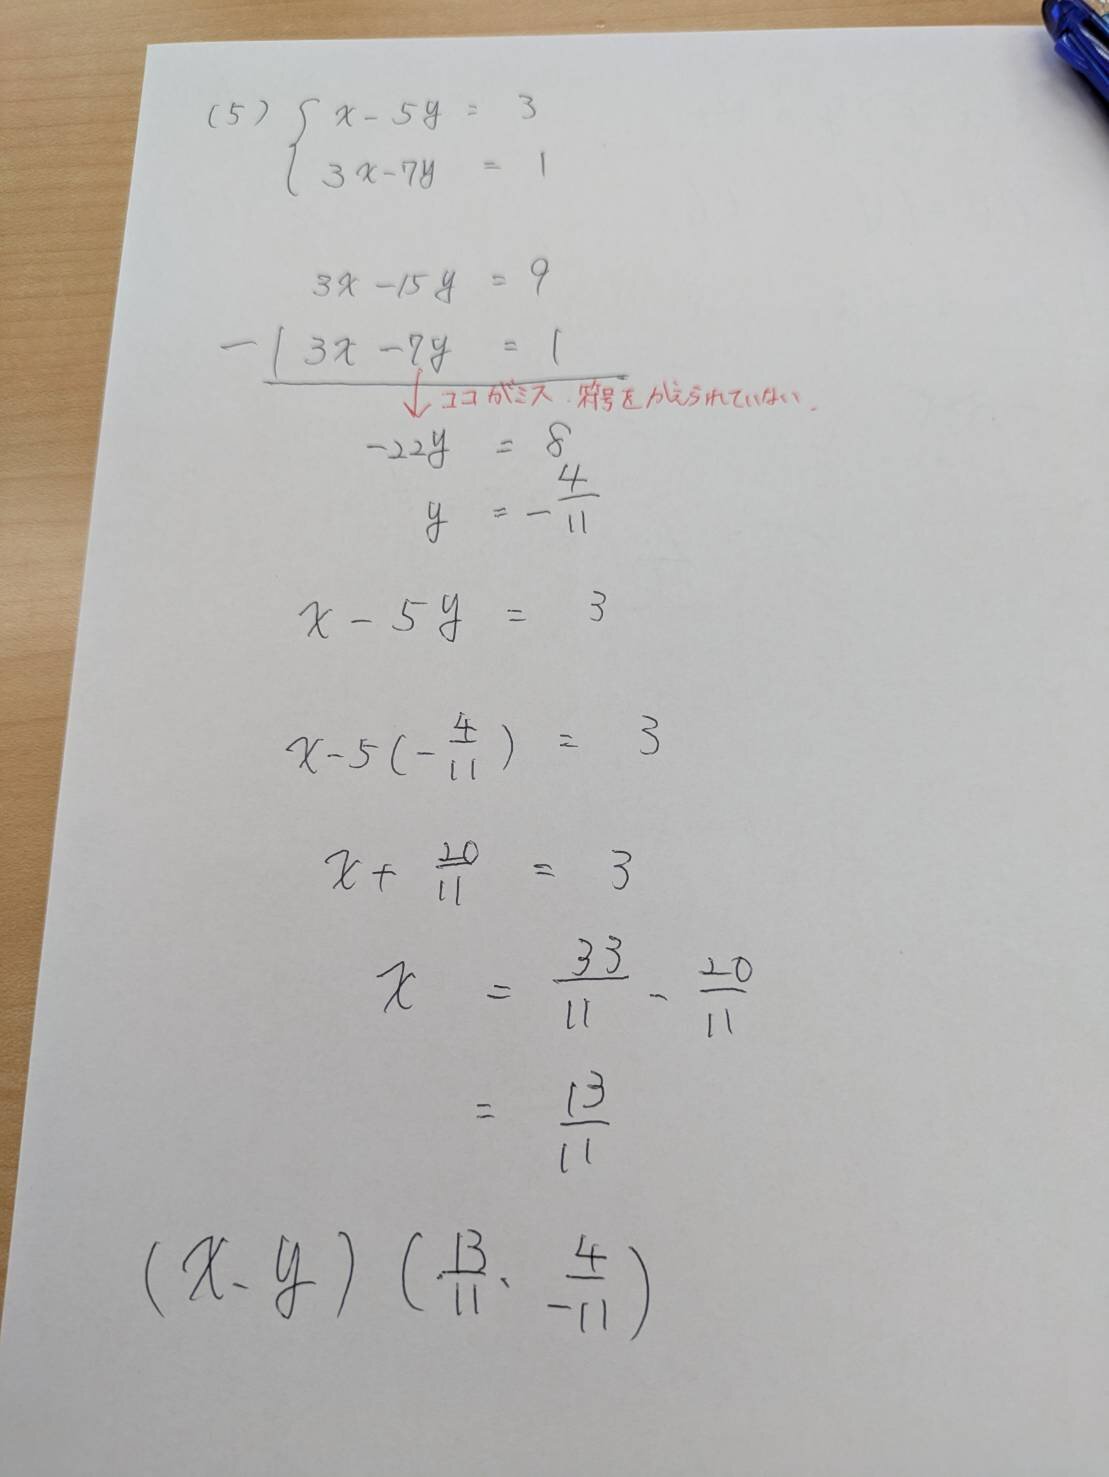 (5) { x - 5y = 3
3x - 7y = 1
3x - 15y = 9
-) 3x - 7y = 1
↓ ココがミス. 符号をかえられていない.
-22y = 8
y = -4/11
x - 5y = 3
x - 5(-4/11) = 3
x + 20/11 = 3
x = 33/11 - 20/11
= 13/11
(x、y) (13/11、4/-11)